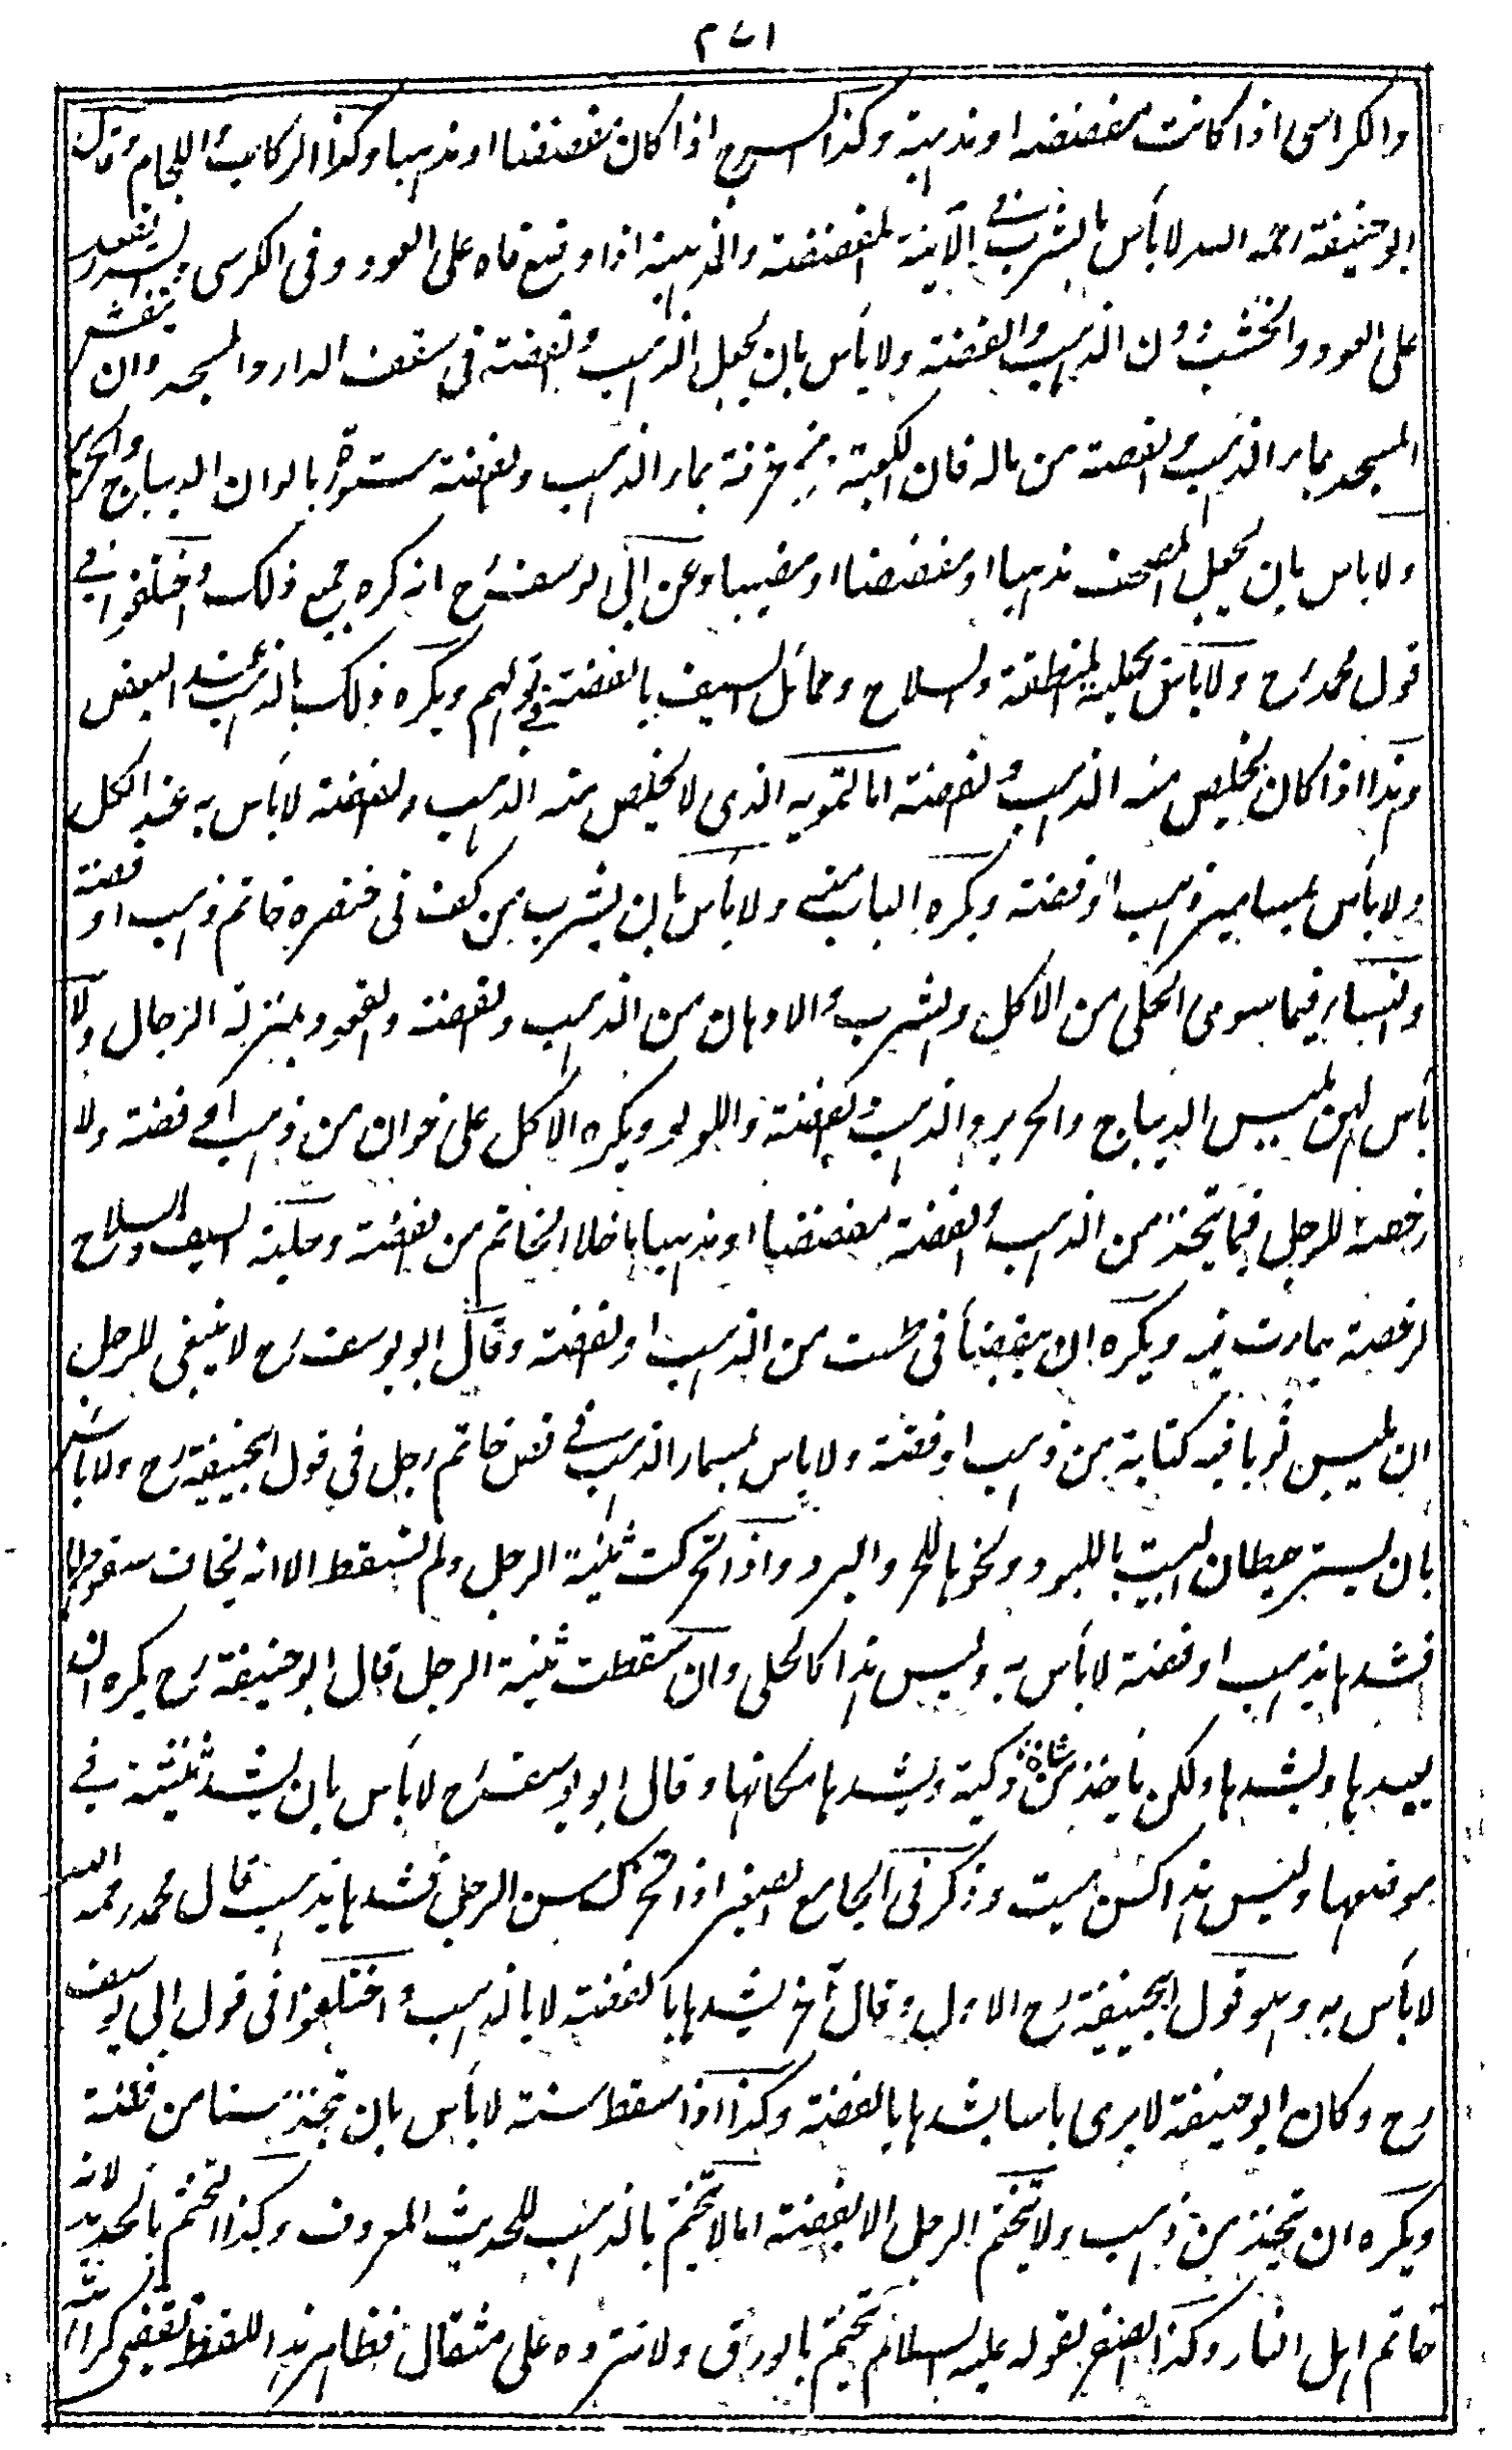 ٣٧١
والكراسى اذا كانت مفضضة او مذهبة وكذا السرج اذا كان مفضضا او مذهبا وكذا الركاب و اللجام وقال
ابو حنيفة رحمه الله لا بأس بالشرب فى الآنية المفضضة والمذهبة اذا وضع فاه على العود وفى الكرسى والسرير يقعد
على العود والخشب دون الذهب والفضة ولا بأس بان يجعل الذهب والفضة فى سقف الدار والمسجد وان ينقش
المسجد بماء الذهب والفضة من ماله فان الكعبة مزخرفة بماء الذهب والفضة مستورة بالوان الديباج والحرير
ولا باس بان يجعل المصحف مذهبا او مفضضا او مضببا وعن ابى يوسف رح انه كره جميع ذلك واختلفوا فى
قول محمد رح ولا بأس بحلية المنطقة والسلاح وحمائل السيف بالفضة فى قولهم ويكره ذلك بالذهب عند البعض
وهذا اذا كان يخلص منه الذهب والفضة اما التمويه الذى لا يخلص منه الذهب والفضة لا بأس به عند الكل
ولا بأس بمسامير ذهب او فضة ويكره الباب منه ولا بأس بان يشرب من كف فى خنصره خاتم ذهب او فضة
والنساء فيما سوى الحلى من الاكل والشرب والادهان من الذهب والفضة والقعود بمنزلة الرجال ولا
بأس لهن بلبس الديباج والحرير والذهب والفضة واللولو ويكره الاكل على خوان من ذهب او فضة ولا
رخصة للرجل فيما يتخذ من الذهب والفضة مفضضا او مذهبا ما خلا الخاتم من الفضة وحلية السيف والسلاح
لرخصة جاءت فيه ويكره ان يتوضأ فى طست من الذهب او الفضة وقال ابو يوسف رح لا ينبغى للرجل
ان يلبس ثوبا فيه كتابة من ذهب او فضة ولا باس بمسمار الذهب فى فص خاتم رجل فى قول ابيحنيفة رح ولا بأس
بان يستر حيطان البيت باللبود ونحوها للحر والبرد واذا تحركت ثنية الرجل ولم تسقط الا انه يخاف سقوطها
فشدها بذهب او فضة لا بأس به وليس هذا كالحلى وان سقطت ثنية الرجل قال ابو حنيفة رح يكره ان
يعيدها ويشدها ولكن يأخذ من شاة ذكية ويشدها مكانها وقال ابو يوسف رح لا بأس بان يشد ثنيته فى
موضعها وليس هذا كسن ميت وذكر فى الجامع الصغير اذا تحرك سن الرجل فشدها بذهب قال محمد رحمه الله
لا بأس به وهو قول ابيحنيفة رح الاول وقال آخر يشدها بالفضة لا بالذهب واختلفوا فى قول ابى يوسف
رح وكان ابو حنيفة لا يرى باسا بشدها بالفضة وكذا اذا سقط سنه لا بأس بان يتخذ سنا من فضة
ويكره ان يتخذ من ذهب ولا يتختم الرجل الا بالفضة اما لا يتختم بالذهب للحديث المعروف وكذا التختم بالحديد لانه
خاتم اهل النار وكذا الصفر لقوله عليه السلام تختم بالورق ولا تزده على مثقال فظاهر هذا اللفظ يقتضى كراهة